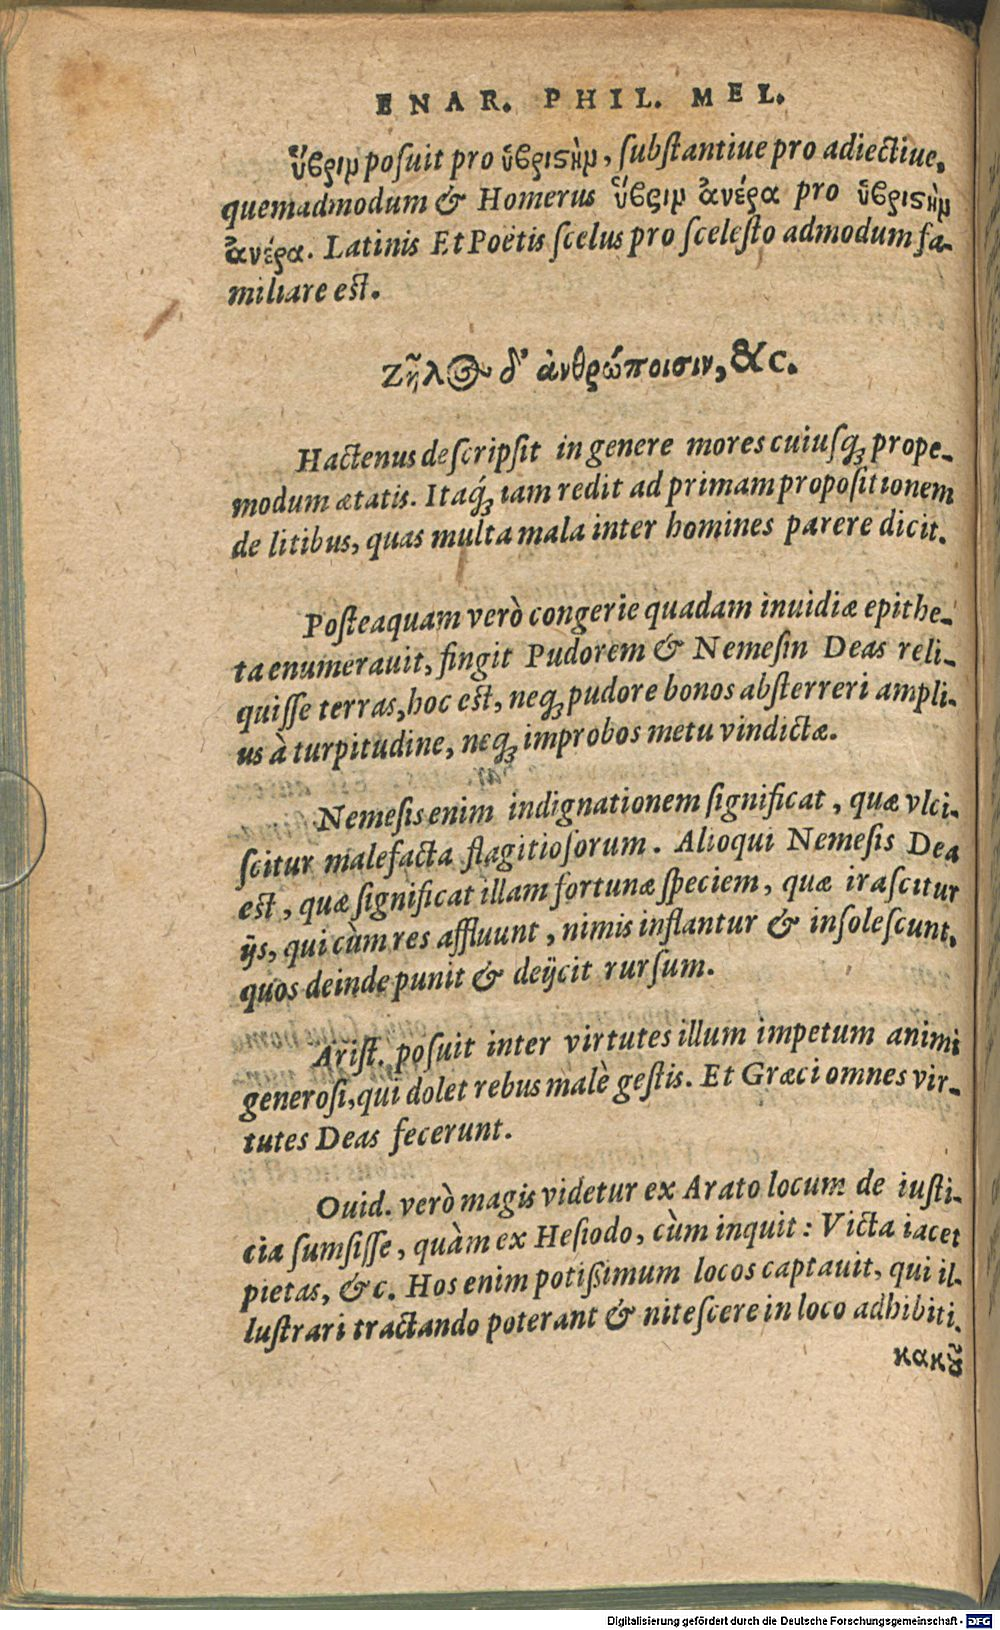 ENAR. PHIL. MEL.
ὕβριν posuit pro ὑβριστὴν, ſubſtantiue pro adiectiue,
quemadmodum & Homerus ὕβριν ἀνέρα pro ὑβριστὴν
ἀνέρα. Latinis Et Poëtis ſcelus pro ſceleſto admodum fa-
miliare eſt.
Ζῆλος δ' ἀνθρώποισιν, &c.
Hactenus deſcripſit in genere mores cuiuſq; prope-
modum ætatis. Itaq́; iam redit ad primam propoſitionem
de litibus, quas multa mala inter homines parere dicit.
Poſteaquam verò congerie quadam inuidiæ epithe-
ta enumerauit, fingit Pudorem & Nemeſin Deas reli-
quiſſe terras, hoc eſt, neq; pudore bonos abſterreri ampli-
us à turpitudine, neq; improbos metu vindictæ.
Nemeſis enim indignationem ſignificat, quæ vlci-
ſcitur malefacta flagitioſorum. Alioqui Nemeſis Dea
eſt, quæ ſignificat illam fortunæ ſpeciem, quæ iraſcitur
ijs, qui cùm res affluunt, nimis inflantur & inſoleſcunt,
quos deinde punit & deijcit rurſum.
Ariſt. poſuit inter virtutes illum impetum animi
generoſi, qui dolet rebus malè geſtis. Et Græci omnes vir-
tutes Deas fecerunt.
Ouid. verò magis videtur ex Arato locum de iuſti-
cia ſumſiſſe, quàm ex Heſiodo, cùm inquit: Victa iacet
pietas, &c. Hos enim potiſsimum locos captauit, qui il-
luſtrari tractando poterant & niteſcere in loco adhibiti.
κακοῦ
Digitalisierung gefördert durch die Deutsche Forschungsgemeinschaft - DFG